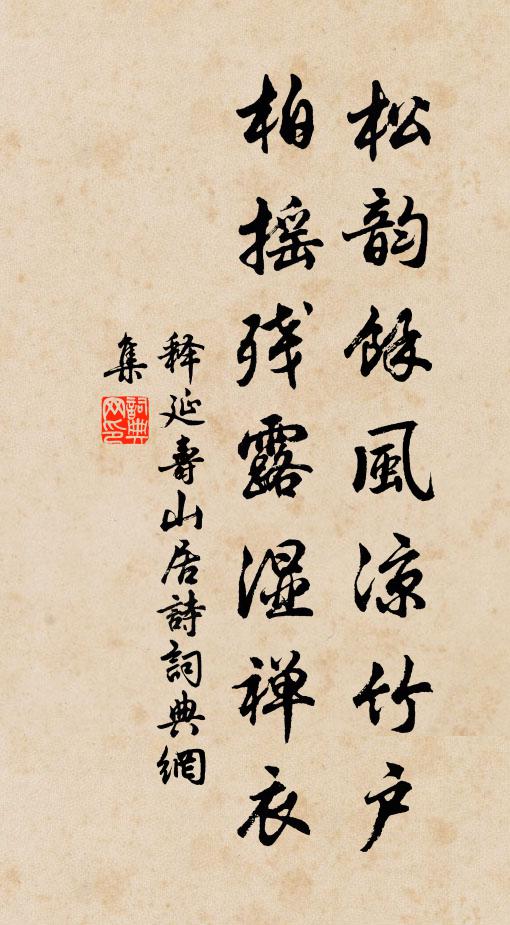 松韵餘風凉竹户
柏摇残露湿禅衣
释延壽山居詩詞典網
集
詞典網印